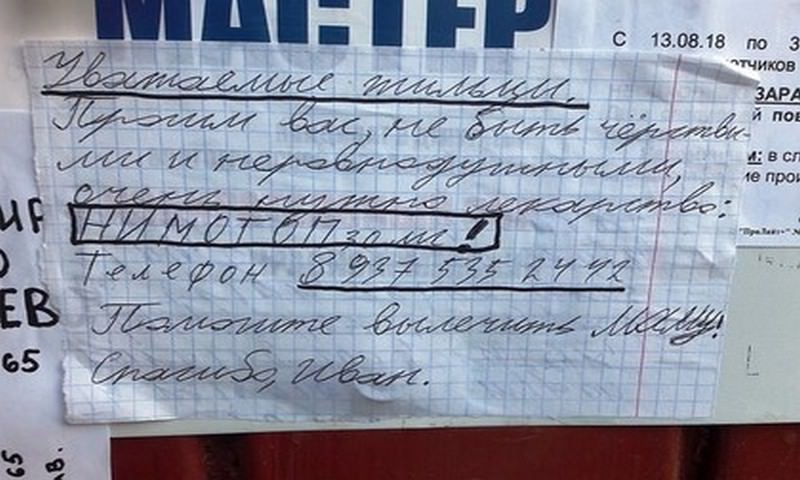 МАСТЕР
С 13.08.18 по 3
тчиков
ЗАРА
й пов
м: в сл
ие прои
Уважаемые жильцы.
Просим вас, не быть чёрствы-
ми и неравнодушными,
очень нужно лекарство:
НИМОТОП 30 мг!
Телефон 8 937 535 24 42
Поможите вылечить маму!
Спасибо, Иван.
ЕВ
65
65
ав.